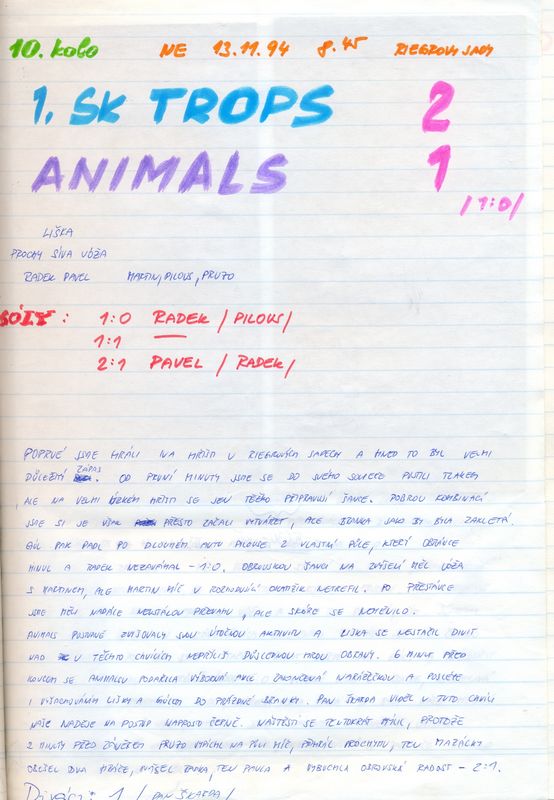 10. kolo NE 13.11.94 8.45 RIEGROVY SADY
1. SK TROPS 2
ANIMALS 1
/1:0/
LIŠKA
PROCHY SÍVA VÓŽA
RADEK PAVEL MARTIN, PILOUS, PRUZO
GÓLY: 1:0 RADEK /PILOUS/
1:1 —
2:1 PAVEL /RADEK/
POPRVÉ JSME HRÁLI NA HŘIŠTI V RIEGROVÝCH SADECH A HNED TO BYL VELMI
DŮLEŽITÝ ZÁPAS. OD PRVNÍ MINUTY JSME SE DO SVÉHO SOUPEŘE PUSTILI TLAKEM
, ALE NA VELMI ÚZKÉM HŘIŠTI SE JEN TĚŽKO PŘIPRAVUJÍ ŠANCE. DOBROU KOMBINACÍ
JSME SI JE VŠAK PŘESTO ZAČALI VYTVÁŘET, ALE BRANKA JAKO BY BYLA ZAKLETÁ.
GÓL PAK PADL PO DLOUHÉM AUTU PILOUSE Z VLASTNÍ PŮLE, KTERÝ OBRÁNCE
MINUL A RADEK NEZAVÁHAL - 1:0. OBROVSKOU ŠANCI NA ZVÝŠENÍ MĚL VÓŽA
S MARTINEM, ALE MARTIN MÍČ V ROZHODUJÍCÍ OKAMŽIK NETREFIL. PO PŘESTÁVCE
JSME MĚLI NADÁLE NEUSTÁLOU PŘEVAHU, ALE SKÓRE SE NEMĚNILO.
ANIMALS POSTUPNĚ ZVYŠOVALY SVOU ÚTOČNOU AKTIVITU A LIŠKA SE NESTAČIL DIVIT
NAD V TĚCHTO CHVÍLÍCH NEPŘÍLIŠ DŮSLEDNOU HROU OBRANY. 6 MINUT PŘED
KONCEM SE ANIMALSU PODAŘILA VÝBORNÁ AKCE ZAKONČENÁ NARÁŽEČKOU A POSLÉZE
I VYŠACHOVÁNÍM LIŠKY A GÓLEM DO PRÁZDNÉ BRANKY. PAN ŠKARDA VIDĚL V TUTO CHVÍLI
NAŠE NADĚJE NA POSTUP NAPROSTO ČERNĚ. NAŠTĚSTÍ SE TENTOKRÁT MÝLIL, PROTOŽE
2 MINUTY PŘED ZÁVĚREM PRUZO VYPÍCHL NA PŮLI MÍČ, PŘIHRÁL PROCHYMU, TEN MAZÁCKY
OBEŠEL DVA HRÁČE, RADKA, TEN PAVLA A VYBUCHLA OSTROVSKÁ RADOST - 2:1.
Diváci: 1 /PAN ŠKARDA/